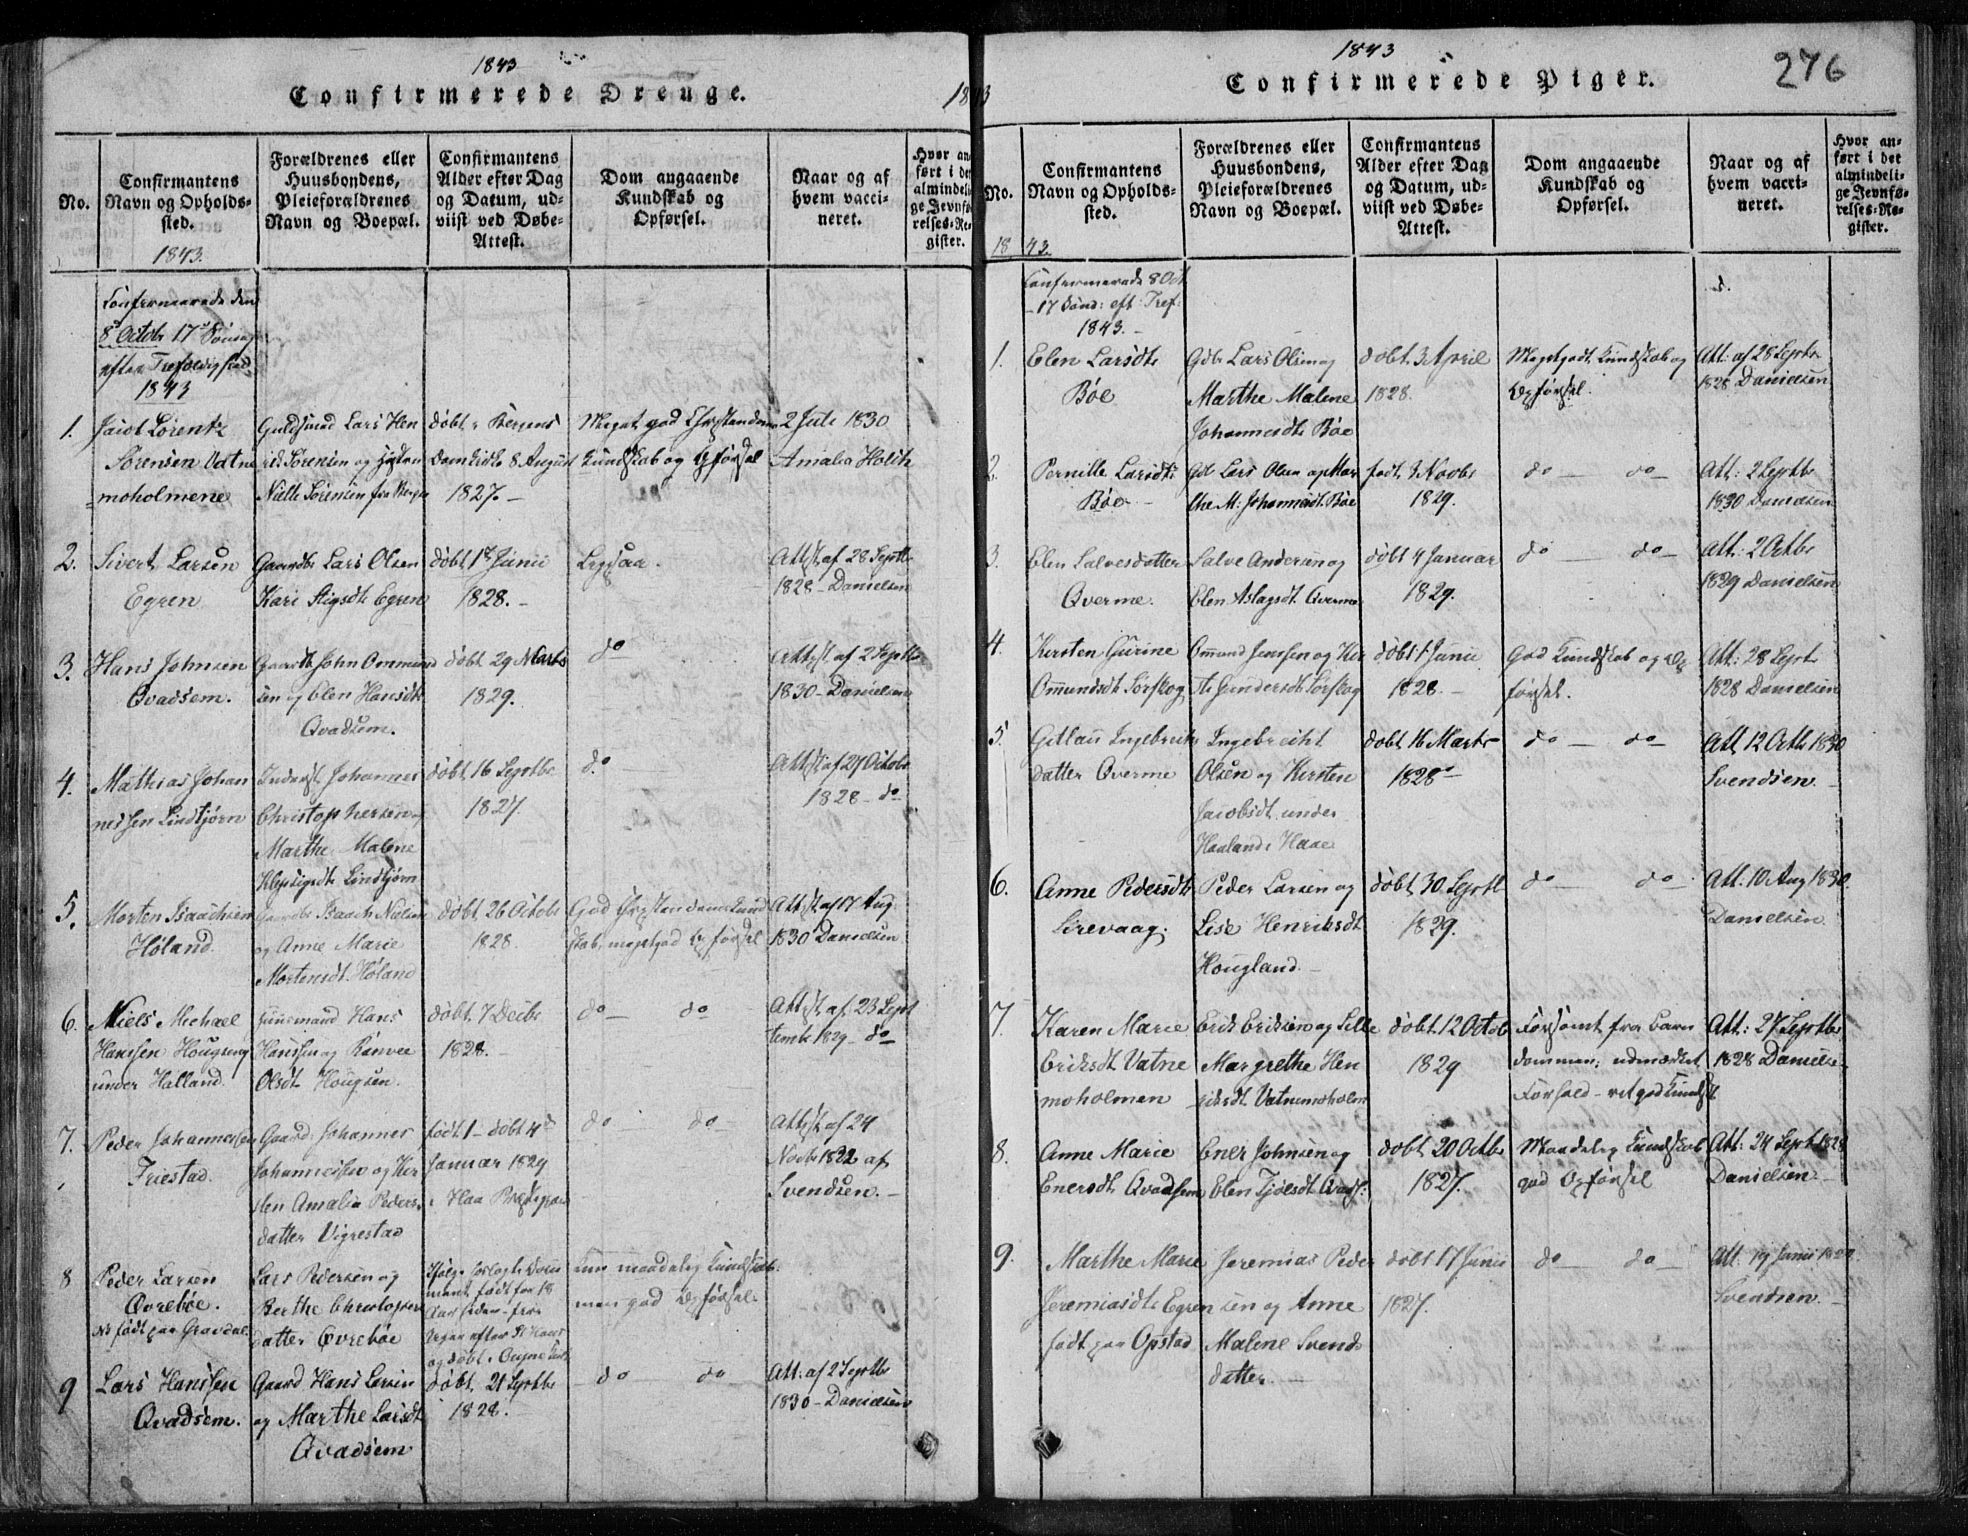 1843
Confirmerede Drenge.
1843
No.
Confirmantens
Navn og Opholds-
sted.
1843.
Forældrenes eller
Huusbondens,
Pleieforældrenes
Navn og Boepæl.
Confirmantens
Alder efter Dag
og Datum, ud-
viist ved Døbe-
Attest.
Dom angaaende
Kundskab og
Opførsel.
Naar og af
hvem vacci-
neret.
Hvor an-
ført i det
almindeli-
ge Jevnfø-
relses-Re-
gister.
Confirmerede den
8 Octobr 17 Søndag
efter Trefoldighed
1843
1.
Jacob Lorentz
Sørensen Vatne
moholmene
Guldsmed Lars Hen
rik Sørensen og
Nille Sørensen fra Bergen
døbt i Bergens
Domkirke 8 August
1827.
Meget god Christendoms
Kundskab og Opførsel
2 Juli 1830
Amalia Holch
2.
Sivert Larsen
Egren
Gaardbr Lars Olsen
Kari Stigsdtr Egren
døbt 1 Junii
1828.
Ligesaa.
Attest af 28 Septbr
1828 - Danielsen
3.
Hans Johnsen
Qvadsem.
Gaardb John Ommund
sen og Elen Hansdtr
Qvadsem.
døbt 29 Marts
1829.
do
Attest af 2 Septbr
1830 - Danielsen
4.
Mathias Johan
nessen Lindtjørn
Inderst Johannes
Christophersen og
Marthe Malene
Lindtjørn
døbt 16 Septbr
1827.
do
Attest af 27 Octobr
1828 - do
5.
Morten Isaachsen
Høland
Gaardbr Isaach Nielsen
og Anne Marie
Mortensdt. Høland
døbt 26 Octobr
1828.
God Christendoms Kund
skab, megetgod Opførsel
Attest af 17 Aug.
1830 Danielsen
6.
Niels Michael
Hanssen Hougseng
under Halland.
Huusmand Hans
Hanssen og Ranvee
Olsdt Hougsen.
døbt 7 Decbr
1828.
do do
Attest af 23 Sept
tembr 1829 - do
7.
Peder Johannessen
Friestad.
Gaard. Johannes
Johannessen og Kir
sten Amalia Peders
datter Vigrestad
født 1 - døbt 4de
Januar 1829
i Haa Præstegj
do do
Attest af 24
Novbr 1822 af
Svendsen.
8
Peder Larsen
Qvrebøe.
NB født paa Gravdal.
Lars Pedersen og
Berthe Christophers
datter Øvrebøe
Ifølge forlagte Docu
ment født for 18
Aar siden fra
og døbt i Ougne
kun maadelig Kundskab
men god Opførsel.
9
Lars Hanssen
Qvadsem.
Gaard Hans Larsen
og Marthe Larsdt
Qvadsem
døbt 21 Septbr
1828.
do do
Att: af 2 Septbr
1830 - Danielsen
1843
Confirmerede Piger.
276
No.
1843.
Confirmantens
Navn og Opholds-
sted.
Forældrenes eller
Huusbondens,
Pleieforældrenes
Navn og Boepæl.
Confirmantens
Alder efter Dag
og Datum, ud-
viist ved Døbe-
Attest.
Dom angaaende
Kundskab og
Opførsel.
Naar og af
hvem vacci-
neret.
Hvor an-
ført i det
almindeli-
ge Jevnfø-
relses-Re-
gister.
Confirmerede 8 Oct
17 Sønd: eft: Tref:
1843.
1.
Elen Larsdtr
Bøe
Gdbr Lars Olsen og
Marthe Malene
Johannesdtr Bøe
døbt 3 April
1828.
Megetgodt Kundskab og
Opførsel.
Att: af 28 Septbr
1828 Danielsen
2.
Pernille Larsdtr
Bøe
Gdb Lars Olsen og Mar
the M: Johannesdt. Bøe
født 3 Novbr
1829.
do do
Att: 2 Septbr
1830 Danielsen
3.
Elen Salvesdatter
Qverme.
Salve Andersen og
Elen Aslagsdt. Qverme
døbt 4 Januar
1829.
do do
Att: 2 Octbr
1829 Danielsen
4.
Kirsten Gurine
Ommundsdt Torskog
Omund Jenssen og Ker
Gundersdt Torskog
døbt 1 Junii
1828.
God Kundskab og Op
førsel.
Att: 28 Septr
1828 Danielsen
5.
Gitlau Ingebrets
datter Qverme
Ingebreckt
Olsen og Kirsten
Jacobsdt. under
Haaland i Haae
døbt 16 Marts
1828
do do
Att 12 Octb 1830
Svendsen.
6.
Anne Pedersdt
Sirevaag.
Peder Larsen og
Lise Henriksdt
Hougland.
døbt 30 Septb
1829.
do do
Att. 10 Aug 1830.
Danielsen
7.
Karen Marie
Eriksdt Vatne
moholmen
Erik Eriksen og Sille
Margrethe Hen
riksdt Vatnemoholm
døbt 12 Octob
1829
Forsømt fra Barn
dommen, udmærket
Forhold - ret god Kundsk
Att: 27 Septbr
1828 Danielse
8.
Anne Marie
Enersdt Qvadsem
Ener Johnsen og
Elen Tjølsdt Qvads:
døbt 20 Octbr
1827.
Maadelig Kundskab
god Opførsel
Att: 24 Septb 1828
Danielsen
9.
Marthe Marie
Jeremiasdtr Egren
født paa Opstad
Jeremias Peder
sen og Anne
Malene Svends
datter.
døbt 17 Junii
1827.
do do
Att. 19 Junii
Svendsen